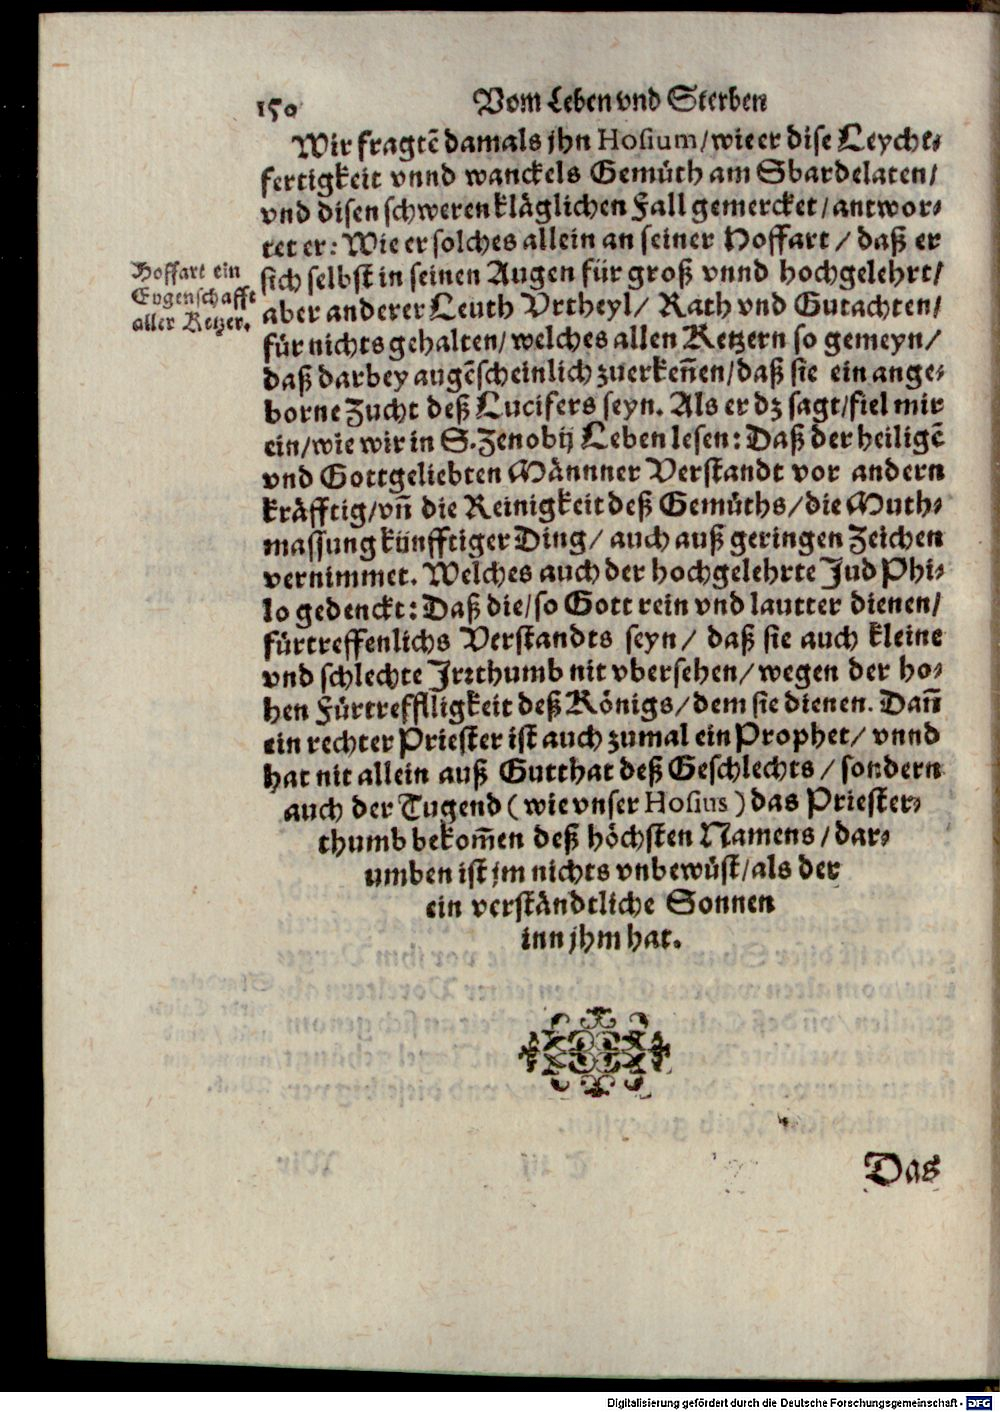 150 Vom Leben vnd Sterben
Wir fragtē damals jhn Hosium/wie er dise Leycht-
fertigkeit vnnd wanckels Gemüth am Sbardelaten/
vnd disen schweren kläglichen Fall gemercket/antwor-
tet er: Wie er solches allein an seiner Hoffart/daß er
sich selbst in seinen Augen für groß vnnd hochgelehrt/
aber anderer Leuth Vrtheyl/ Rath vnd Gutachten/
für nichts gehalten/welches allen Ketzern so gemeyn/
daß darbey augēscheinlich zuerkeñen/daß sie ein ange-
borne Zucht deß Lucifers seyn. Als er dz sagt/fiel mir
ein/wie wir in S. Zenobij Leben lesen: Daß der heiligē
vnd Gottgeliebten Männner Verstandt vor andern
kräfftig/vñ die Reinigkeit deß Gemüths/die Muth-
massung künfftiger Ding/ auch auß geringen Zeichen
vernimmet. Welches auch der hochgelehrte Jud Phi-
lo gedenckt: Daß die/so Gott rein vnd lautter dienen/
fürtreffenlichs Verstandts seyn/ daß sie auch kleine
vnd schlechte Jrꝛthumb nit vbersehen/wegen der ho-
hen Fürtrefflligkeit deß Königs/dem sie dienen. Dañ
ein rechter Priester ist auch zumal ein Prophet/ vnnd
hat nit allein auß Gutthat deß Geschlechts/ sondern
auch der Tugend (wie vnser Hosius) das Priester-
thumb bekom̄en deß höchsten Namens/dar-
umben ist jm nichts vnbewüst/als der
ein verständtliche Sonnen
inn jhm hat.
Hoffart ein
Eygenschafft
aller Ketzer.
Das
Digitalisierung gefördert durch die Deutsche Forschungsgemeinschaft - DFG